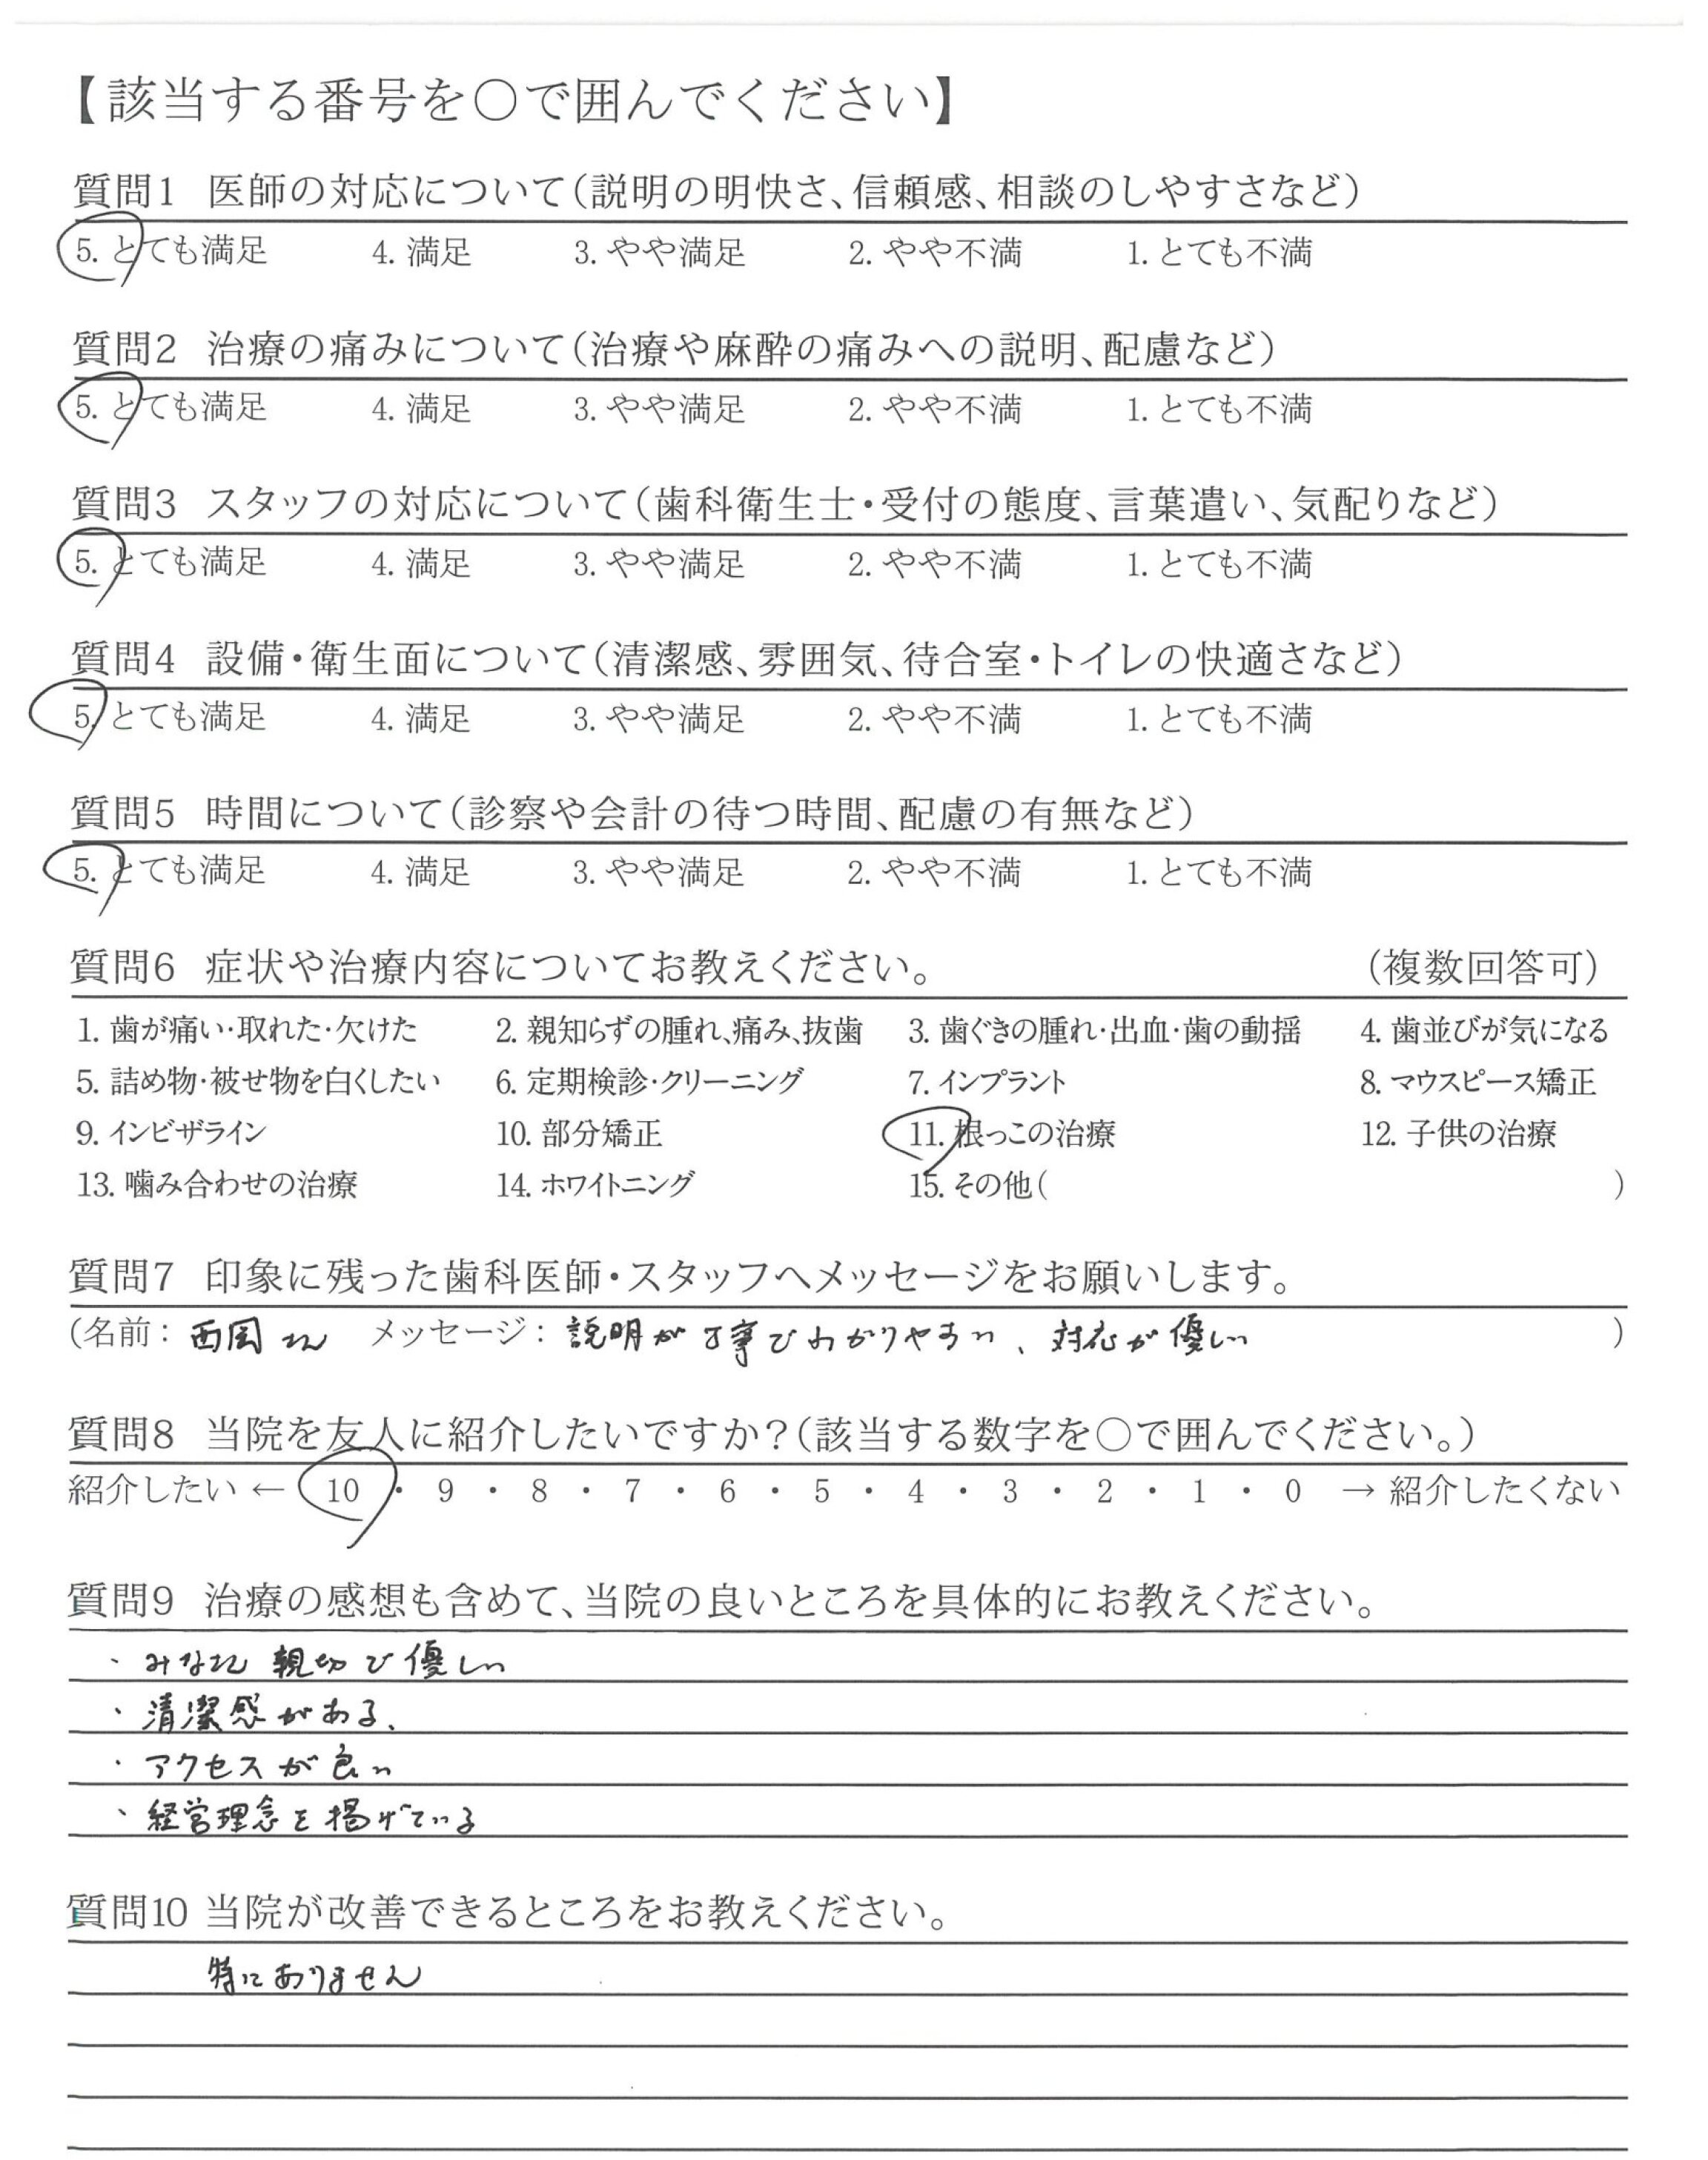 【該当する番号を〇で囲んでください】
質問1 医師の対応について(説明の明快さ、信頼感、相談のしやすさなど)
5. とても満足 4. 満足 3. やや満足 2. やや不満 1. とても不満
質問2 治療の痛みについて(治療や麻酔の痛みへの説明、配慮など)
5. とても満足 4. 満足 3. やや満足 2. やや不満 1. とても不満
質問3 スタッフの対応について(歯科衛生士・受付の態度、言葉遣い、気配りなど)
5. とても満足 4. 満足 3. やや満足 2. やや不満 1. とても不満
質問4 設備・衛生面について(清潔感、雰囲気、待合室・トイレの快適さなど)
5. とても満足 4. 満足 3. やや満足 2. やや不満 1. とても不満
質問5 時間について(診察や会計の待つ時間、配慮の有無など)
5. とても満足 4. 満足 3. やや満足 2. やや不満 1. とても不満
質問6 症状や治療内容についてお教えください。 (複数回答可)
1. 歯が痛い・取れた・欠けた 2. 親知らずの腫れ、痛み、抜歯 3. 歯ぐきの腫れ・出血・歯の動揺 4. 歯並びが気になる
5. 詰め物・被せ物を白くしたい 6. 定期検診・クリーニング 7. インプラント 8. マウスピース矯正
9. インビザライン 10. 部分矯正 11. 根っこの治療 12. 子供の治療
13. 噛み合わせの治療 14. ホワイトニング 15. その他( )
質問7 印象に残った歯科医師・スタッフへメッセージをお願いします。
(名前: 西岡さん メッセージ: 説明が丁寧でわかりやすい、対応が優しい )
質問8 当院を友人に紹介したいですか?(該当する数字を〇で囲んでください。)
紹介したい ← 10 ・ 9 ・ 8 ・ 7 ・ 6 ・ 5 ・ 4 ・ 3 ・ 2 ・ 1 ・ 0 → 紹介したくない
質問9 治療の感想も含めて、当院の良いところを具体的にお教えください。
・みなさん 親切で優しい
・清潔感がある、
・アクセスが良い
・経営理念を掲げている
質問10 当院が改善できるところをお教えください。
特にありません